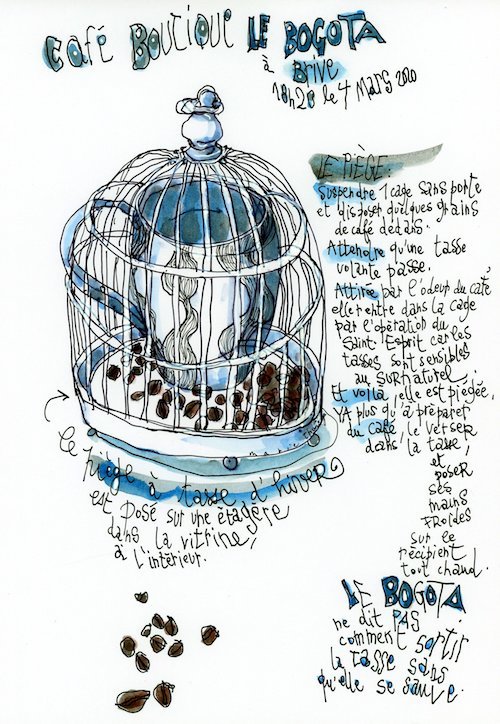 Café Boutique LE BOGOTA
à
Brive
18h20 le 4 Mars 2020
LE PIÈGE:
Suspendre 1 cage sans porte
et disposer quelques grains
de café dedans.
Attendre qu'une tasse
volante passe.
Attirée par l'odeur du café
elle rentre dans la cage
par l'opération du
Saint Esprit car les
tasses sont sensibles
au surnaturel.
Et voilà, elle est piégée,
YA plus qu'à préparer
du café, le verser
dans la tasse,
et
poser
ses
mains
froides
sur le
récipient
tout chaud.
Le piège à tasse d'hiver
est posé sur une étagère
dans la vitrine,
à l'intérieur.
LE BOGOTA
ne dit PAS
comment sortir
la tasse sans
qu'elle se sauve.